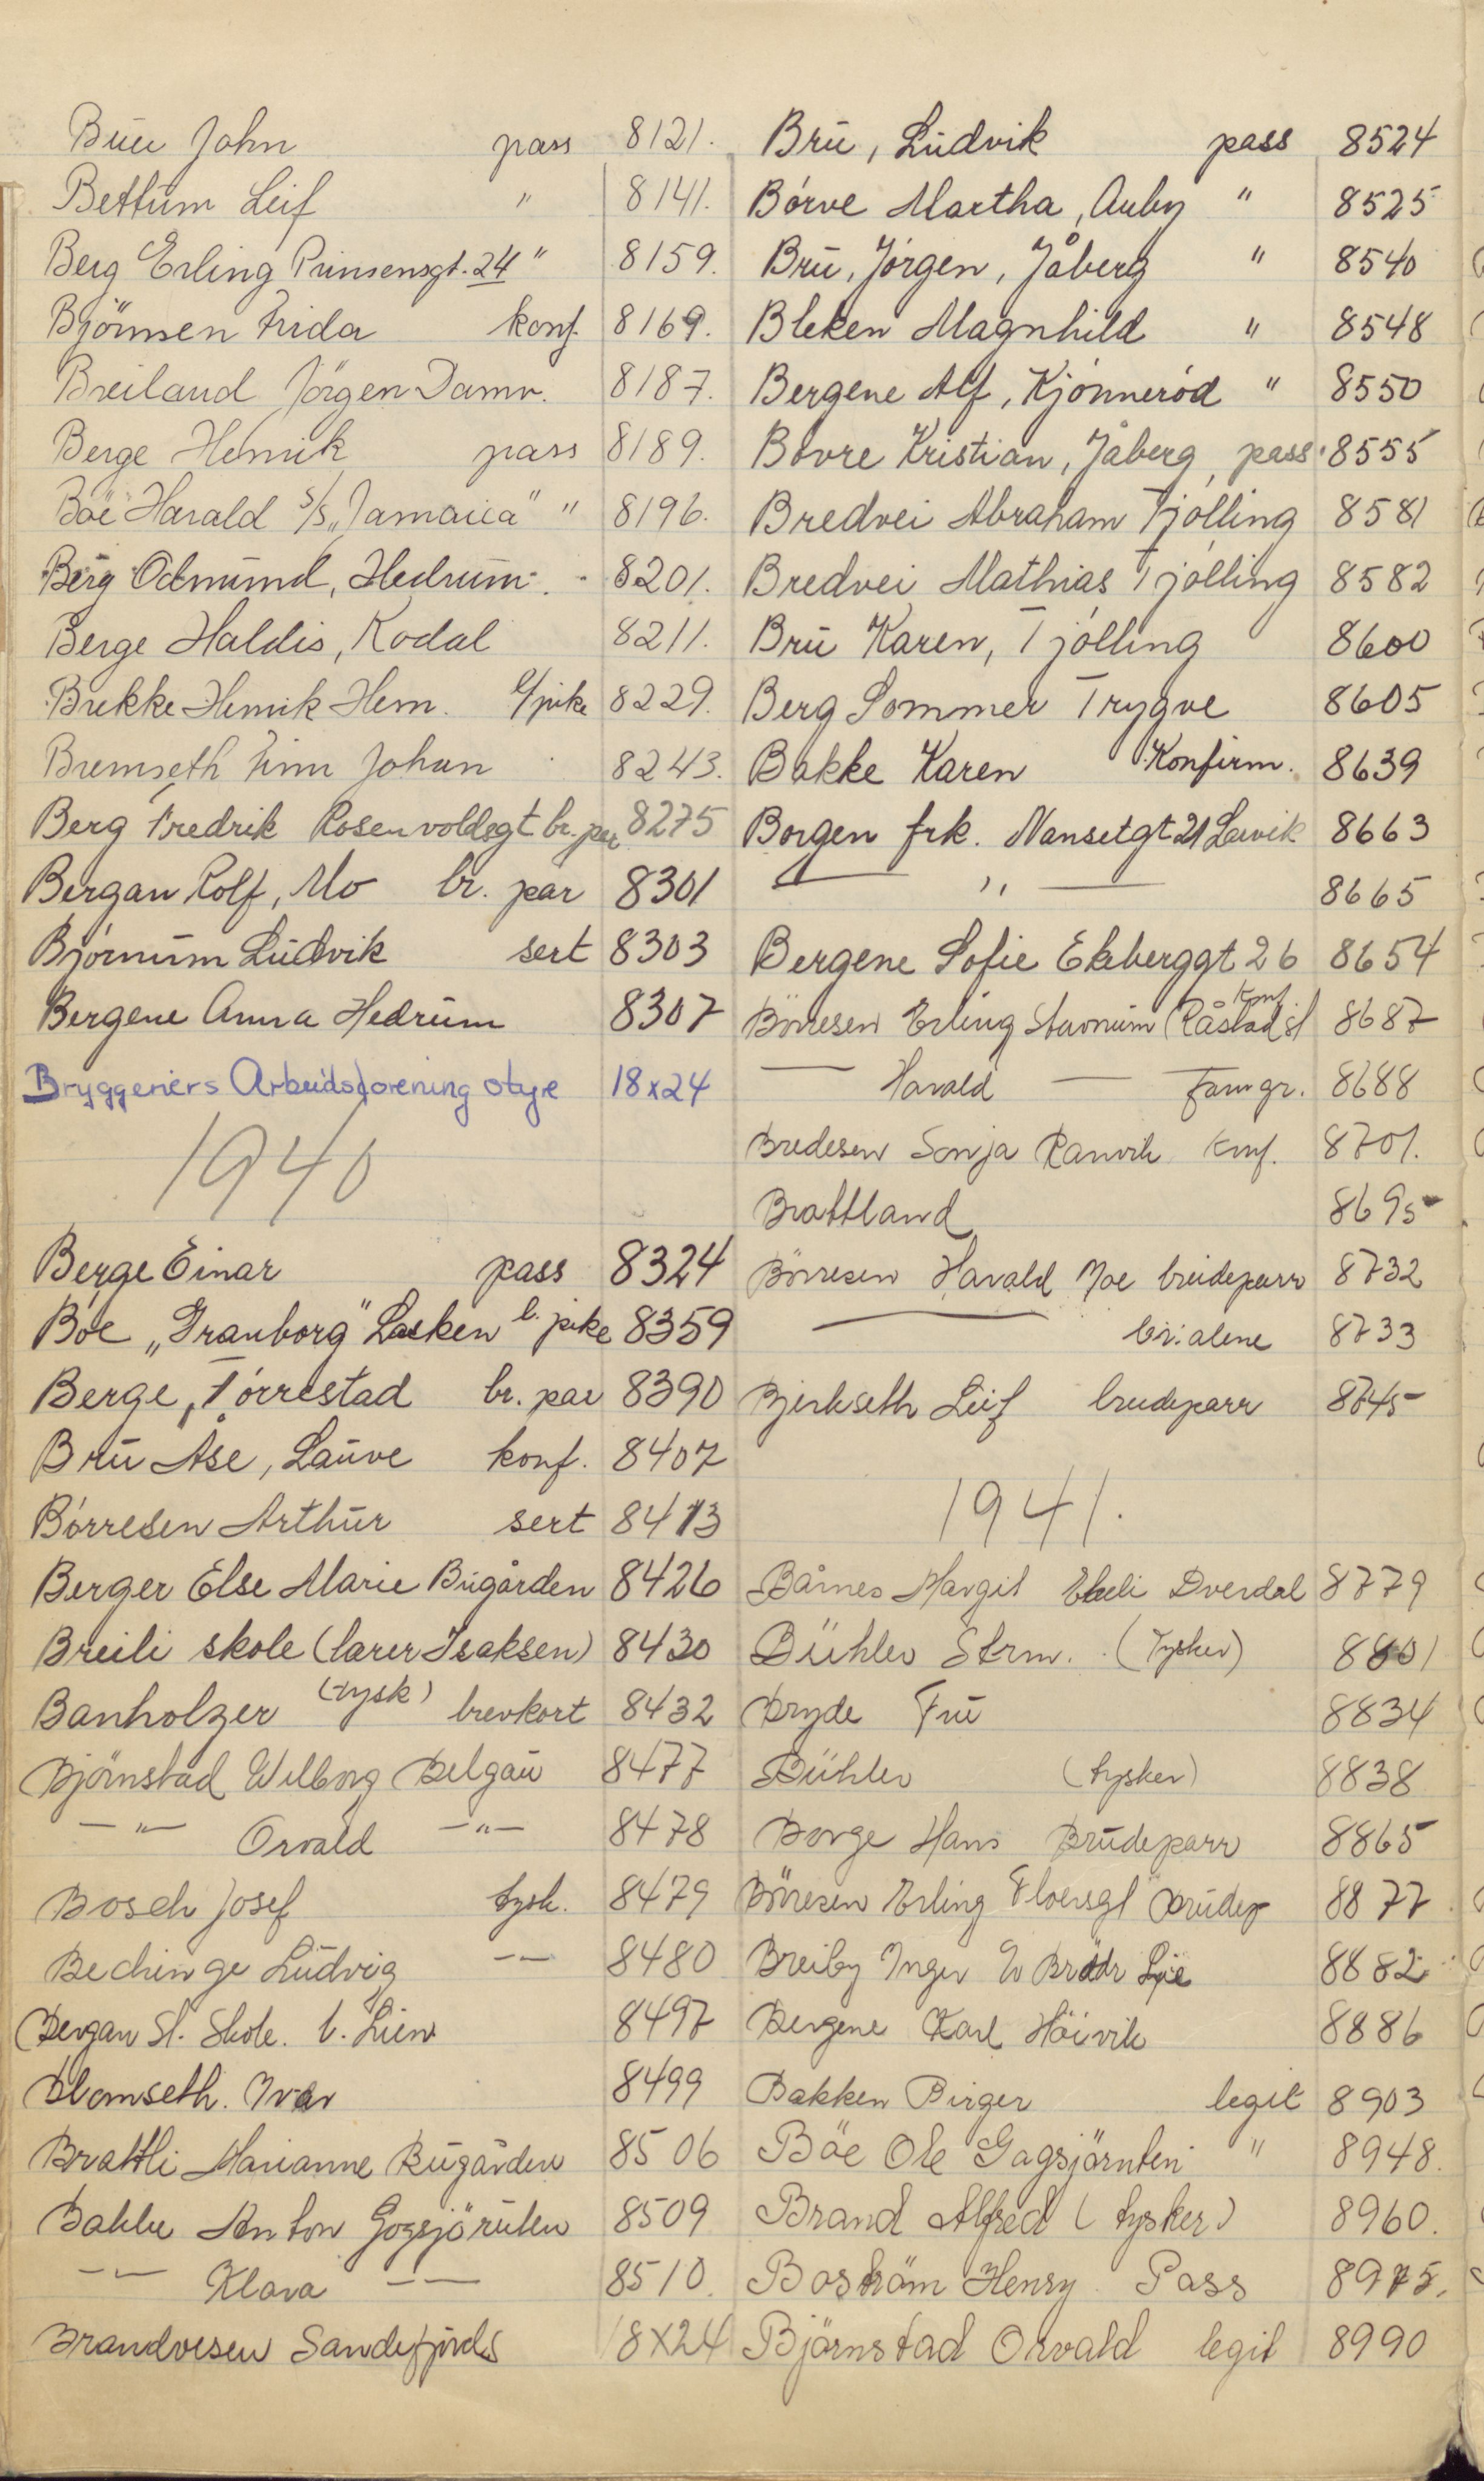 Buer John pass 8121.
Bettum Leif " 8141.
Berg Erling Prinsensgt. 24 " 8159.
Björnsen Frida konf. 8169.
Breiland Jörgen Damv. 8187.
Berge Henrik pass 8189.
Böe Harald S/S „Jamaica" " 8196.
Berg Odmund, Hedrum. 8201.
Berge Haldis, Kodal 8211.
Brekke Henrik Hem. pike 8229.
Bremseth Finn Johan 8243.
Berg Fredrik Rosenvoldsgt br. par 8275
Bergan Rolf, Mo br. par 8301
Bjórnum Ludvik sert 8303
Bergene Anna Hedrum 8307
Bryggeriers Arbeidsforening styre 18x24
1940
Berge Einar pass 8324
Bóe „Granborg" Lasken l. pike 8359
Berge, Tórrestad br. par 8390
Bru Åse, Lauve konf. 8407
Bórresen Arthur sert 8413
Berger Else Marie Bugården 8426
Breili skole (lærer Isaksen) 8430
Banholzer (tysk) brevkort 8432
Björnstad Wilborg Belgau 8477
— " — Orvald — " — 8478
Bosch Josef tysk. 8479
Bechinge Ludvig — — 8480
Bergan St. Skole. b. Lien 8497
Blomseth. Ivar 8499
Brattli Marianne Bugården 8506
Bakke Anton Gogsjöruten 8509
— — Klara — — 8510
Brandvesen Sandefjords 18x24
Bru, Ludvik pass 8524
Bórve Martha, Auby " 8525
Bru, Jórgen, Jåberg " 8540
Bleken Magnhild " 8548
Bergene Alf, Kjónneród " 8550
Bóvre Kristian, Jåberg, pass. 8555
Bredvei Abraham Tjólling 8581
Bredvei Mathias Tjólling 8582
Bru Karen, Tjólling 8600
Berg Sommer Trygve 8605
Bakke Karen Konfirm. 8639
Borgen frk. Nansetgt 21 Larvik 8663
— " — 8665
Bergene Sofie Ekeberggt 26 8654
Börresen Erling Stavnum (Råstad st konf. 8687
— Harald — Famgr. 8688
Bredesen Sonja Ranvik konf. 8701.
Brattland 8695
Börresen Harald Moe brudeparr 8732
— br. alene 8733
Bjerkseth Leif brudeparr 8745
1941.
Bårnes Margit Ekeli Dverdal 8779
Bühler Strm. (tysker) 8801
Bryde Fru 8834
Bühler (tysker) 8838
Borge Hans Brudeparr 8865
Börresen Erling Brudep 8877
Breiby Inger Brødr Lie 8882
Bergene Karl Höivik 8886
Bakken Birger legit 8903
Böe Ole Gogsjörnten " 8948.
Brand Alfred (tysker) 8960.
Boström Henry Pass 8975.
Björnstad Orvald legit 8990